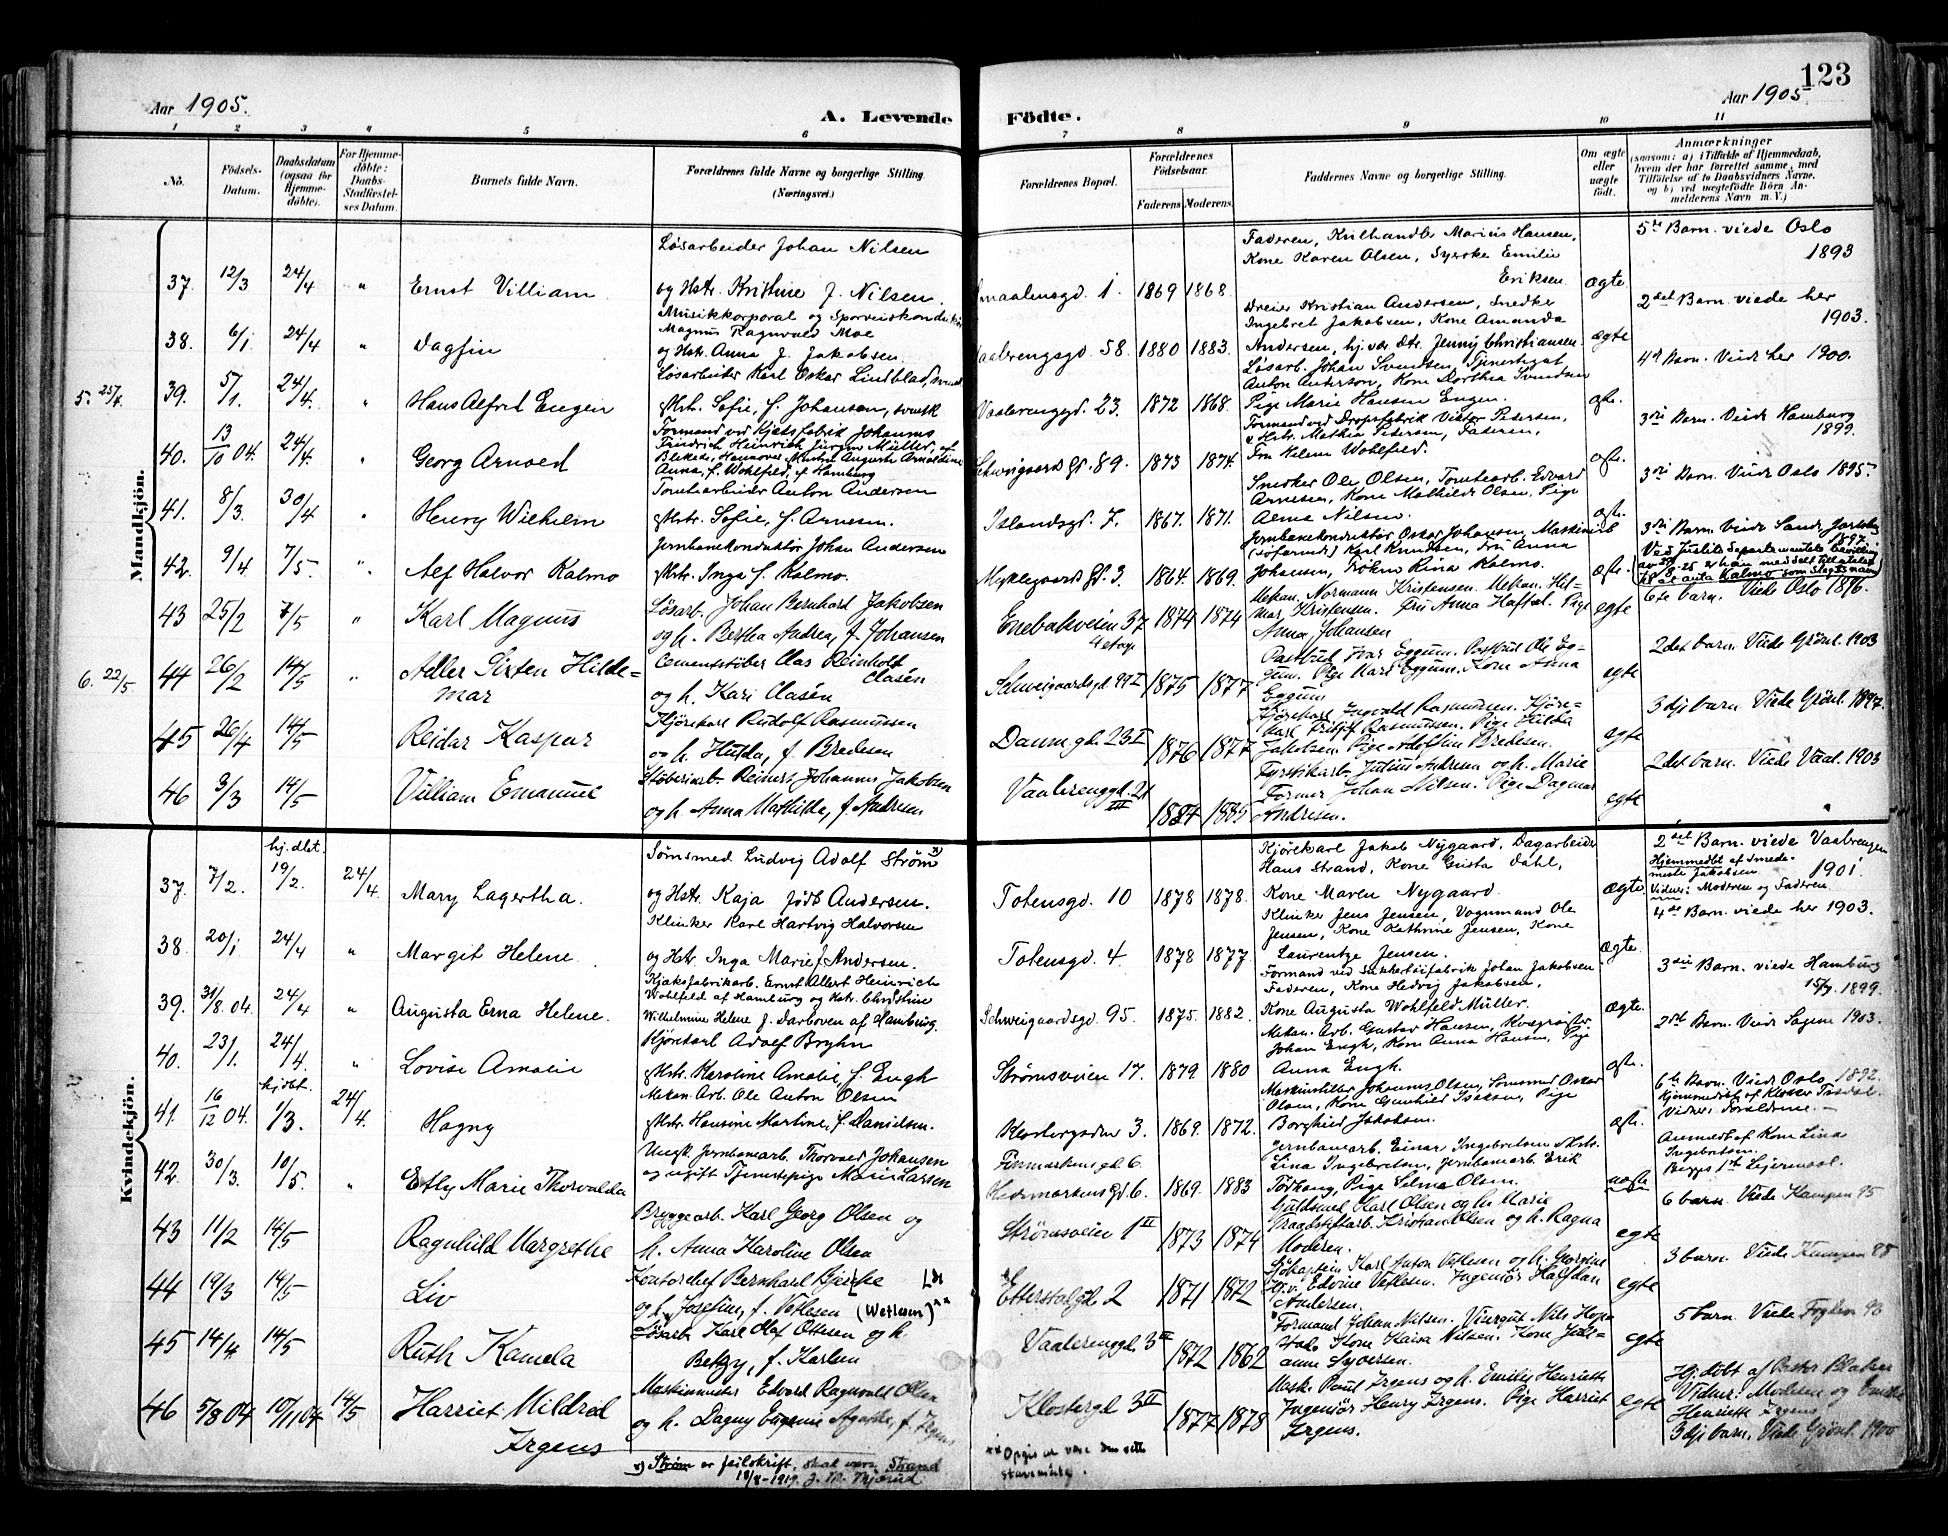 123
Aar 1905.
A. Levende Födte.
Aar 1905
1 2 3 4 5 6 7 8 9 10 11
No.
Födsels-Datum.
Daabsdatum (ogsaa for Hjemme-döbte).
For Hjemme-döbte: Daabs-Stadfæstel-ses Datum.
Barnets fulde Navn.
Forældrenes fulde Navne og borgerlige Stilling. (Næringsvei.)
Forældrenes Bopæl.
Forældrenes Födselsaar.
Faderens. Moderens.
Faddernes Navne og borgerlige Stilling.
Om ægte eller uægte födt.
Anmærkninger
(saasom: a) i Tilfælde af Hjemmedaab, hvem der har forrettet samme, med Tilföielse af to Daabsvidners Navne, og b) ved uægtefödte Börn An-melderens Navn m. V.)
Mandkjön.
37. 12/3 24/4 " Ernst Villiam
Løsarbeider Johan Nilsen
og Hstr. Kristine f. Nilsen.
Smaalensgd. 1. 1869 1868.
Faderen, Kulhandler Marius Hansen,
Kone Karen Olsen, Syerske Emilie
Eriksen
ægte
5te Barn. viede Oslo
1893
38. 6/1 24/4 " Dagfin
Musikkorporal og Sporveiskonduktør
Magnus Ragnvald Moe
og Hstr. Anna f. Jakobsen.
Vaalerengsgd. 58. 1880 1883.
Dreier Kristian Andersen, Snedker
Ingebret Jakobsen, Kone Amanda
Andersen, hj.vær. Dtr. Jenny Christiansen
ægte
2det Barn viede her
1903.
5. 25/4.
39. 5/1. 24/4. " Hans Alfred Engen
Løsarbeider Karl Oskar Lindblad, svensk
Hstr. Sofie, f. Johansen, svensk
Vaalerenggd. 23. 1872 1868.
Løsarb. Johan Svendsen, Tjenestegut
Anton Anderson, Kone Dorthea Svendsen
Pige Marie Hansen Engen.
ægte.
4de Barn. Viede her 1900.
40. 13/10 04. 24/4. " Georg Arnold
Formand ved Kjæksfabrik Johannes
Friedrich Heinrich Jürgen Müller, af
Blekede, Hannover Hustru Auguste Arnoldine
Anna, f. Wohlfeld, af Hamburg
Schweigaards Gd. 89. 1873 1874.
Formand ved Dropsfabrik Viktor Petersen,
Hstr. Mathea Petersen, Faderen,
Fru Helene Wohlfeld.
ægte.
3die Barn. Viede Hamburg
1899.
41. 8/3. 30/4 " Henry Wilhelm
Tomtearbeider Anton Andersen
Hstr. Sofie, f. Arnesen.
Islandsgd. 7. 1867. 1871.
Smörker Ole Olsen, Tomtearb. Edvard
Arnesen, Kone Mathilde Olsen, Pige
Alma Nilsen.
ægte.
3die Barn. Viede Oslo 1895.
42. 9/4 7/5. " Alf Halvor Kalmo
Jernbanekonduktør Johan Andersen
Hstr. Inga f. Kalmo.
Myklegaards Gd. 3. 1864. 1869.
Jernbanekonduktør Oskar Johansen, Maskinist
(söfarende) Karl Knudsen, Fru Anna
Johansen, Frøken Kina Kalmo.
ægte.
3die Barn Viede Sande, Jarlsberg
1897.
Ved Justitsdepartementets bevilling
Kalmo som slegtsnavn
43 25/2 7/5 " Karl Magnus
Løsarb. Johan Bernhard Jakobsen
og h. Bertha Andrea, f. Johansen
Enebakveien 37
4 etage
1874 1874
Mekan. Normann Kristensen. Mekan. Hil-
mar Kristensen. Gru Anna Haftal. Pige
Anna Johansen
egte
6te barn. Viede Oslo 1896.
6. 22/5.
44 26/2 14/5 " Adler Sixten Hilde=
mar
Cementstøber Clas Reinholt
Clasén
og h. Kari Clasén
Schweigaardsgd 99 II 1875 1877
Postbud Ivar Eggum. Postbud Ole Eg-
gum. Pige Kari Eggum. Kone Anna
Eggum
egte
2det barn. Viede Grønl. 1903
45 26/4 14/5 Reidar Kaspar
Kjørekarl Rudolf Rasmussen
og h. Hulda, f. Bredesen
Danm.gd. 23 II 1876 1877
Kjørekarl Ingvald Rasmussen. Kjøre=
karl Fritjof Rasmussen. Pige Hulda
Jakobsen. Pige Adolfine Bredesen.
egte
3dje barn. Viede Grønl. 1897.
46 3/3 14/5 Villiam Emanuel
Støberiarb. Reinert Johannes Jakobsen
og h Anna Mathilde, f. Andresen
Vaalerenggd. 21
III
1884 1885
Fyrstikarb. Julius Andresen og h. Marie
Former Johan Nilsen. Pige Dagmar
Andresen.
egte
2det barn. Viede Vaal. 1903
Kvindekjön.
37. 7/2. hj.døbt. 19/2. 24/4. Mary Lagertha.
Tømsmed Ludvig Adolf Strøm x)
og Hstr. Kaja født Andersen.
Totensgd. 10 1878 1878.
Kjørekarl Jakob Nygaard, Dagarbeider
Hans Strand, Kone Gusta Dahl,
Kone Maren Nygaard.
ægte
2det Barn viede Vaalerengen
1901.
Hjemmedbt af Smede-
mester Jakobsen
Vidner: Moderen og Faderen
38. 20/1 24/4 " Margit Helene.
Klinker Karl Hartvig Halvorsen
og Hstr. Inga Marie f. Andersen.
Totensgd. 4 1878 1877
Klinker Jens Jensen, Vognmand Ole
Jensen, Kone Kathrine Jensen, Kone
Laurentze Jensen.
ægte.
4de Barn. viede her 1903.
39. 31/8 04. 24/4 " Augusta Erna Helene.
Kjæksfabrikarb. Ernst Albert Heinrich
Wohlfeld af Hamburg og Hstr. Christine
Wilhelmine Helene f. Darboven af Hamburg.
Schweigaardsgd. 95. 1875. 1882.
Formand ved Sukkertøifabrik Johan Jakobsen
Faderen, Kone Hedvig Jakobsen,
Kone Augusta Wohlfeld Müller.
ægte.
3die Barn. viede Hamburg
15/7. 1899.
40. 23/1. 24/4. " Lovise Amalie
Kjørekarl Adolf Bryhn
Hstr. Karoline Amalie, f. Engh
Strømsveien 17. 1879. 1880
Mekan. Arb. Gustav Hansen, Kvægrøgter
Johan Engh, Kone Anna Hansen, Pige
Anna Engh.
ægte.
2det Barn. Viede Sagene 1903.
41. 16/12 04. hj.døbt. 1/3. 24/4. Hagny
Mekan. Arb. Ole Anton Olsen
Hstr. Hansine Martine, f. Danielsen.
Klostergaden 3. 1869. 1872.
Maskinstiller Johannes Olsen, Tømsmed Oskar
Olsen, Kone Gunhild Isaksen, Pige
Borghild Jakobsen.
ægte.
6te Barn. Viede Oslo 1892.
Hjemmedøbt af Klokker Tisdal.
Vidner: Forældrene.
42. 30/3. 10/5. " Etly Marie Thorvalda
Ungk. Jernbanearb. Thorvald Johansen
og ugift Tjenestepige Marie Larsen
Finmarkensgd. 6.
Hedemarkensgd. 6. 1869. 1883
Jernbanearb. Einar Ingebretsen Hstr.
Lina Ingebretsen, Jernbanearb. Erik
Torkang, Pige Selma Olsen.
uægte
Anmeldt af Kone Lina
Ingebretsen.
Begges 1ste Leiermaal.
43 11/2 14/5 Ragnhild Margrethe
Bryggearb. Karl Georg Olsen og
h. Anna Karoline Olsen
Strømsveien 1 II 1873 1874
Guldsmed Karl Olsen og h. Marie
Traadstiftarb. Kristian Olsen og h. Ragna
Moderen.
egte
6 barn. Viede Kampen 95
44 19/3 14/5 Liv
Kontorchef Bernhard Bjerke
og h. Josefine, f. Vetlesen (Wetlesen) **
Etterstadgd 2 1871 1872
Sjøkaptein Karl Anton Vetlesen og h. Georgine
Hj.v. Edvine Vetlesen. Ingeniør Halfdan
Andersen.
egte
3 barn. Viede Kampen 98
45 14/4 14/5 Ruth Kamela
Løsarb. Karl Olaf Ottesen og h.
Betzy, f. Karlsen
Vaalerenggd 3 II 1872 1862
Formand Johan Nilsen. Viergut Nils Hopa
stad. Kone Kaisa Nilsen. Kone Juli=
anne Syversen.
egte
5 barn. Viede Frogken 93
46 5/8 04 10/11 04 14/5 Harriet Mildred
Irgens
Maskinmester Edvard Ragnvald Olsen
og h. Dagny Eugenie Agathe, f. Irgens
Klostergd 3 II 1877 1878
Mask. Poul Irgens og h. Emilie Henriette
Ingeniør Henry Irgens. Pige Harriet
Irgens.
egte
Hj. døbt af Pastor Blaker
Vidner: Moderen og Emilie
Henriette Irgens
3dje barn. Viede Grønl. 1900
x) Strøm er feilskrift, skal være Strand
18/8-1919. J. M. Mjørud
** Opgis at være den rette
stavemåte.